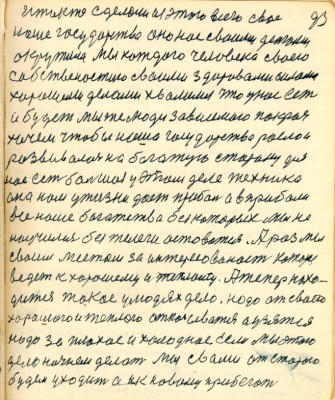 и так то сделони из этого всего свое 93
наше государства оно нас своими детьми
окрутила мы каждого человека своего
собственостию своими здоровами силами
хорошими делами хвалимы что у нас есть
и будет мы же люди зависемого покуда
хочем чтобы наша государства росло и
развивалось на богатую сторону для
нас ест большая у этом деле техника
она нам у жизни дает прибал а в прибале
все наше богатства без которых мы не
научилися без телеги остоватся. А раз мы
своим местом за интересованост которая
ведет к хорошему и теплому. А теперь нахо-
дится такое у людях дело. надо от своего
хорошого и теплого отказыватся а взятся
надо за плохое и холодное если мы это
дело начнем делат мы с вами от старого
будем уходит а к новому прибегат